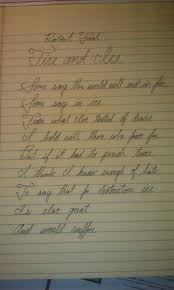 Robert Frost
Fire and Ice
Some say the world will end in fire
Some say in ice
From what I've tasted of desire
I hold with those who favor fire
But if it had to perish twice
I think I know enough of hate
To say that for destruction ice
Is also great
And would suffice